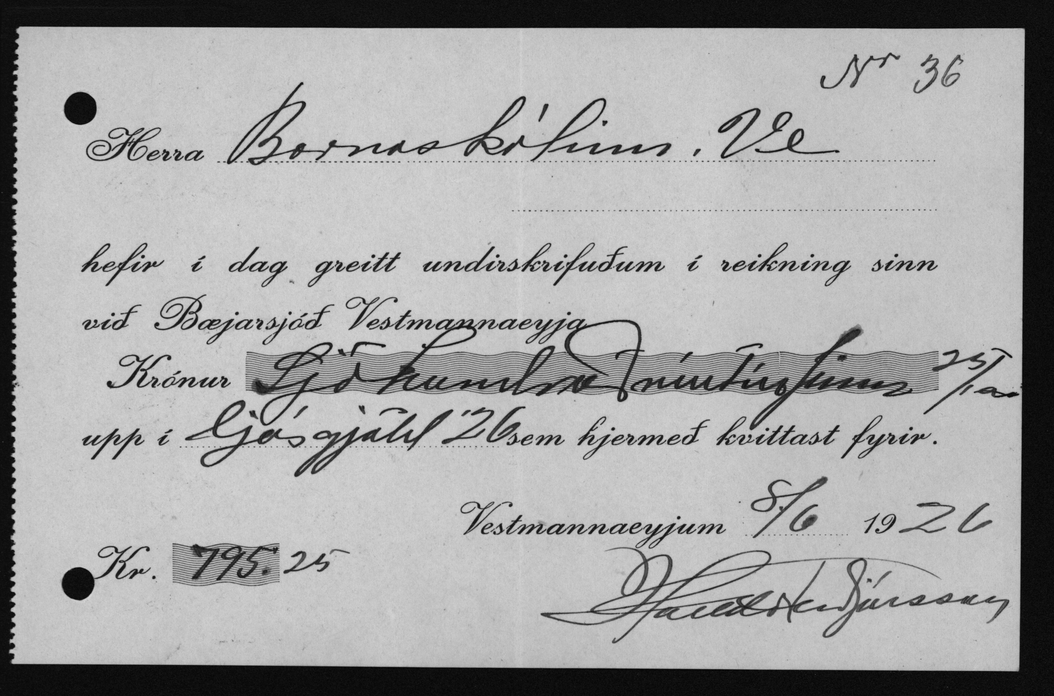 Nr 36
Herra Barnaskólinn. Ve
hefir í dag greitt undirskrifuðum í reikning sinn
við Bæjarsjóð Vestmannaeyja
Krónur Sjöhundruð níutíuogfimm 25/100
upp í ljósgjöld '26 sem hjermeð kvittast fyrir.
Vestmannaeyjum 8/6 1926
Kr. 795.25